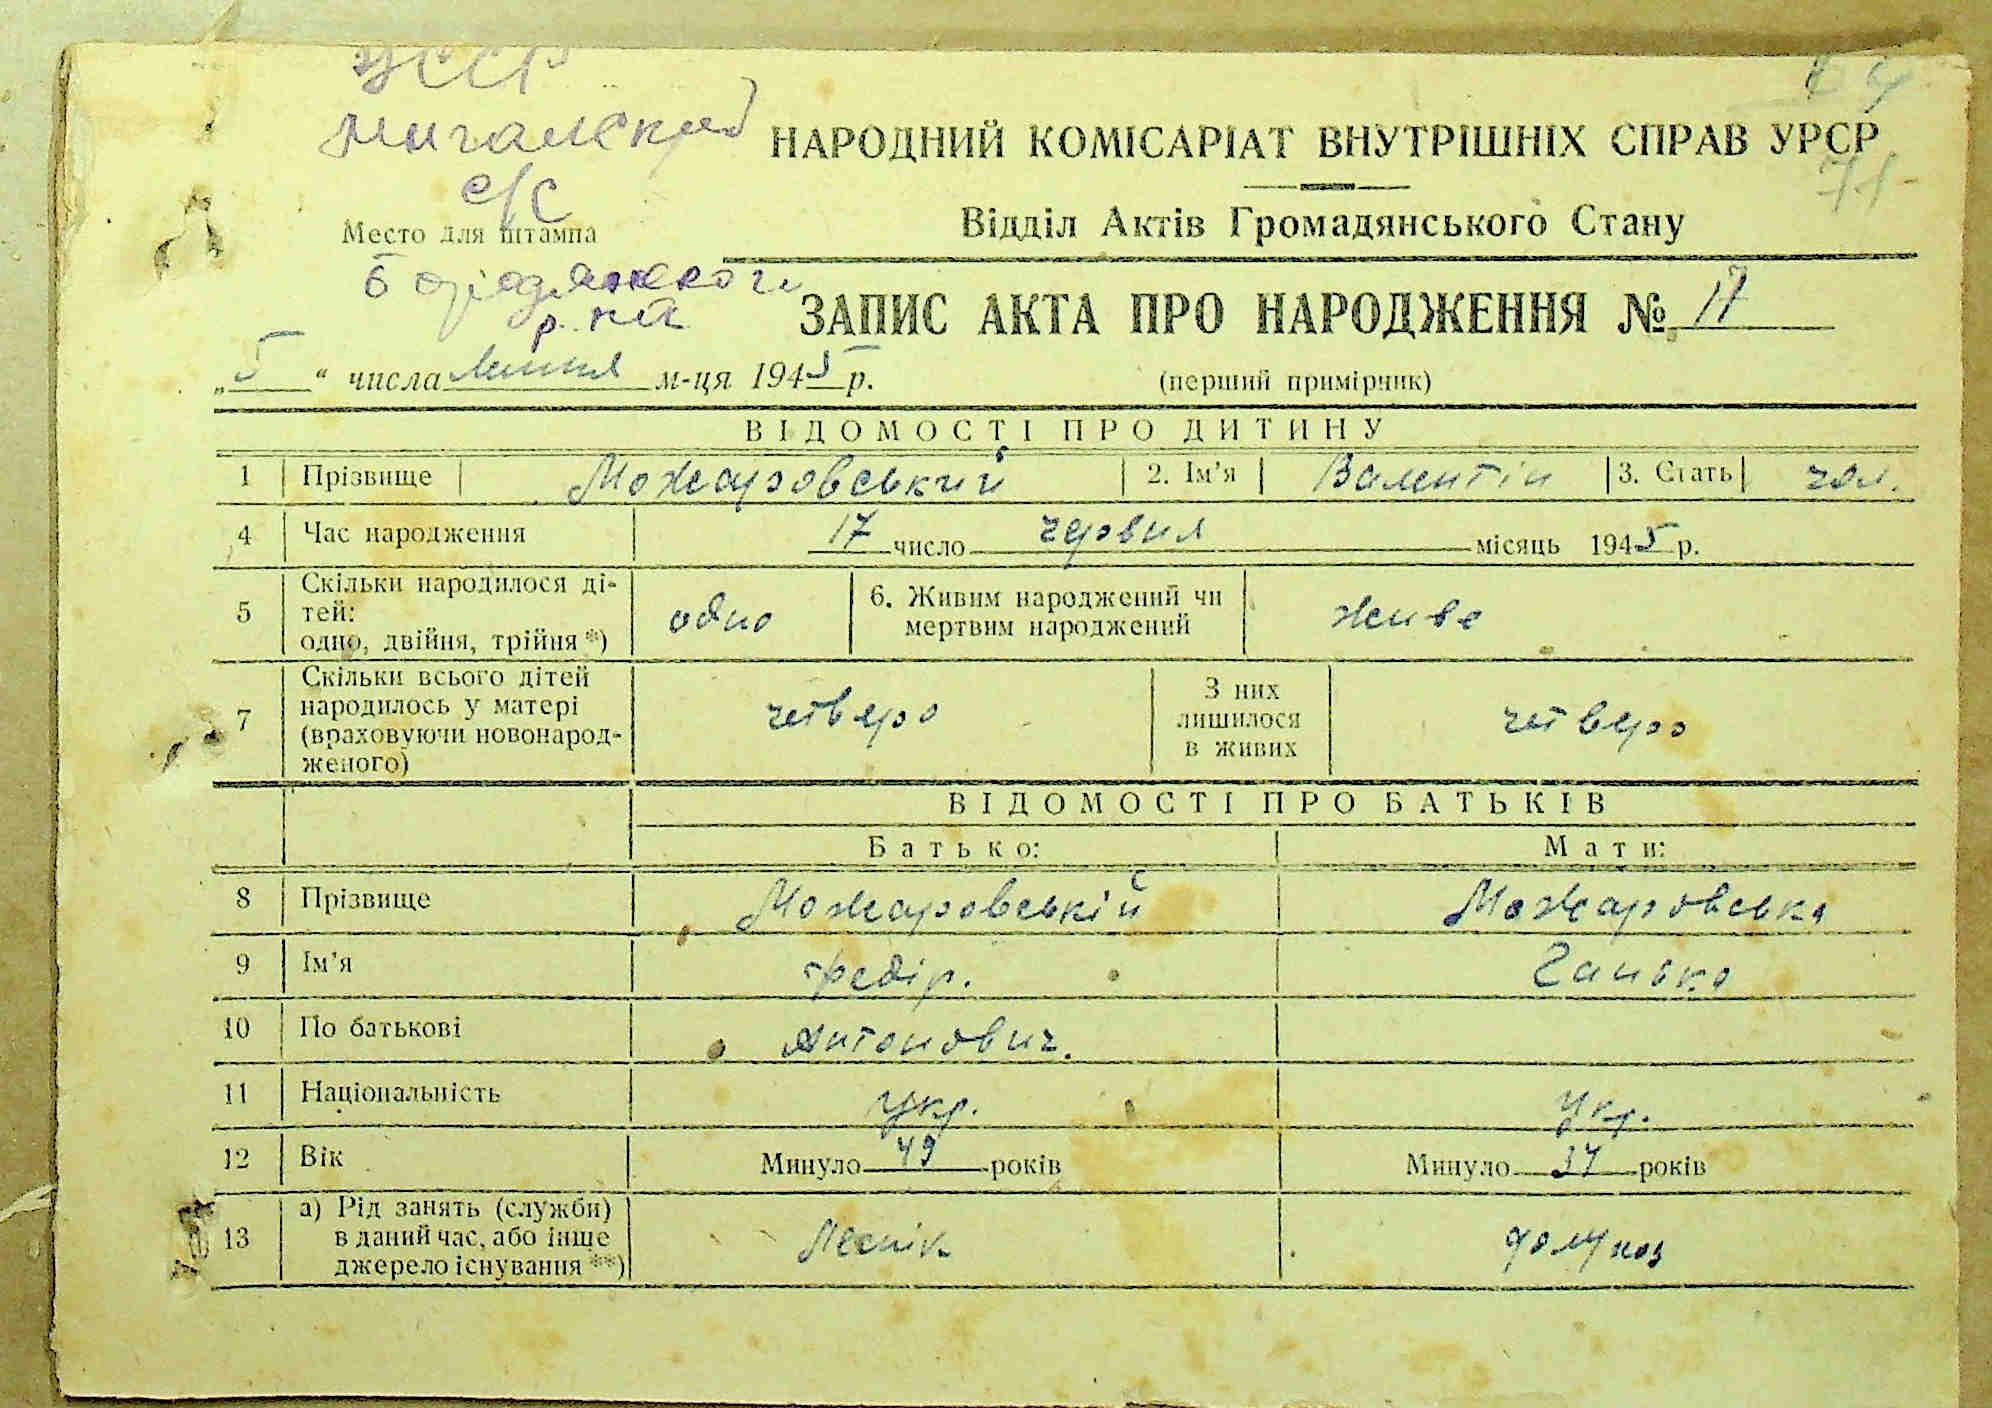 УССР
Мигальский
с/С
Место для штампа
Бородянского
р-на
74
71
НАРОДНИЙ КОМІСАРІАТ ВНУТРІШНІХ СПРАВ УРСР
Відділ Актів Громадянського Стану
ЗАПИС АКТА ПРО НАРОДЖЕННЯ № 17
„5“ числа липня м-ця 1945 р.
(перший примірник)
ВІДОМОСТІ ПРО ДИТИНУ
1 Прізвище Можаровський 2. Ім’я Валентін 3. Стать чол.
4 Час народження 17 число червня місяць 1945 р.
5 Скільки народилося ді-
тей:
одно, двійня, трійня *) одно
6. Живим народжений чи
мертвим народжений живе
7 Скільки всього дітей
народилось у матері
(враховуючи новонарод-
женого) четверо
З них
лишилося
в живих четверо
ВІДОМОСТІ ПРО БАТЬКІВ
Батько: Мати:
8 Прізвище Можаровській Можаровська
9 Ім’я Федір. Ганька
10 По батькові Антонович.
11 Національність укр. укр.
12 Вік Минуло 49 років Минуло 37 років
13 а) Рід занять (служби)
в даний час, або інше
джерело існування **) Леснік домухоз